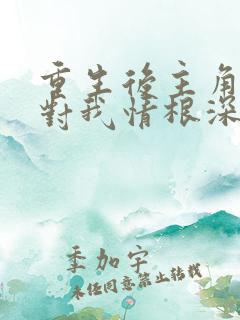 重生後主角
對我情根深
季加宇
未经同意禁止转载